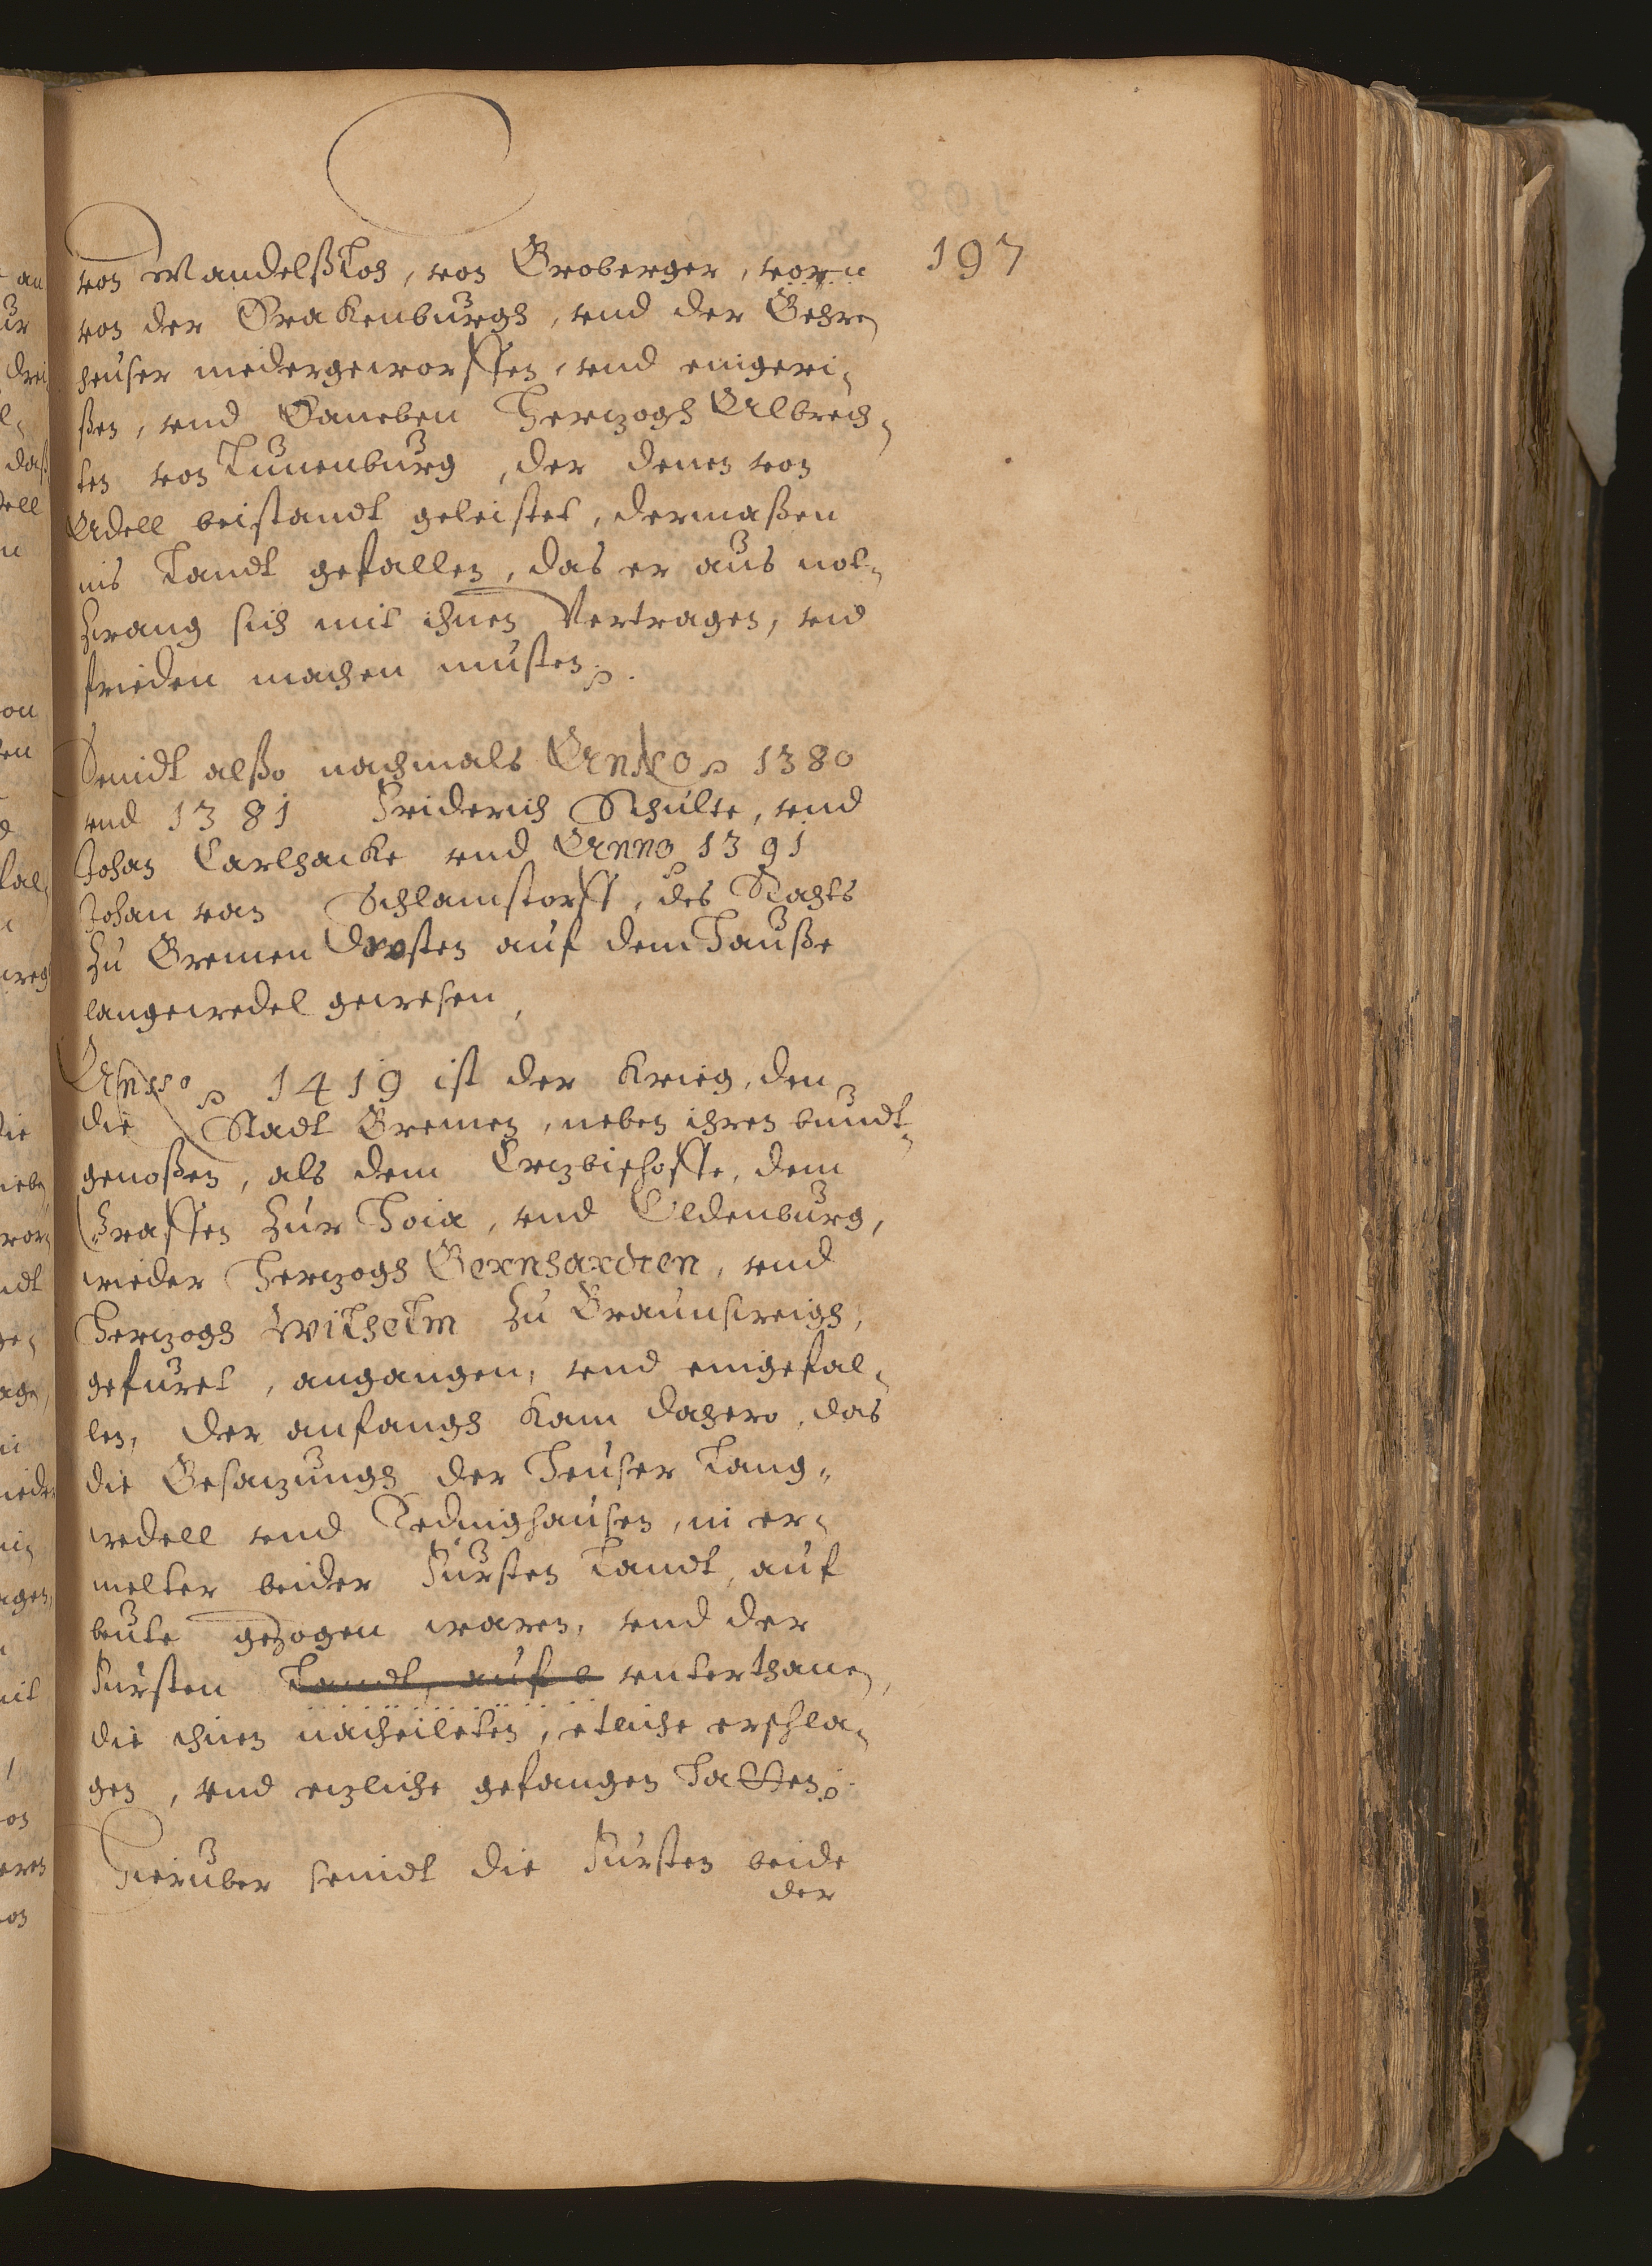 197
von Mandelßloh, von Groberger, vorn
von der Drakenburgh, vnd der Behre
heuser niedergeworffen, vnd eingeri-
ßen, vnd Daneben Hertzogh Albrech-
ten von Lunenburg, der denen von
Adell beistandt geleistet, dermaßen
ins Landt gefallen, das er aus not-
zwang sich mit ihnen Vertragen, vnd
frieden machen musten.
Seindt alßo nachmals Anno 1380
vnd 1381 Friderich Schulte, vnd
Johan Carlhacke vnd Anno 1391
Johan van Schlamstorff, des Rahts
zu Bremen Drosten auf dem Hauße
langewedel gewesen,
Anno 1419 ist der Krieg, den
die Stadt Bremen, neben ihren bundt-
genoßen, als dem Ertzbischoffe, dem
Graffen zur Hoia, vnd Oldenburg,
wieder Hertzogh Bernhardten, vnd
Hertzogh Wilhelm zu Braunsweigh,
gefuret, angangen, vnd eingefal-
len, Der anfangh kam dahero, das
die Besatzungh der Heuser Lang-
wedell vnd Tedinghausen, in er-
melter beider Fursten Landt, auf
beute gezogen waren, vnd der
Fursten Landt, auf b vnterthanen,
die ihnen nacheileten, etliche erschla-
gen, vnd etzliche gefangen Hatten.
Hieruber seindt die Fursten beide
der